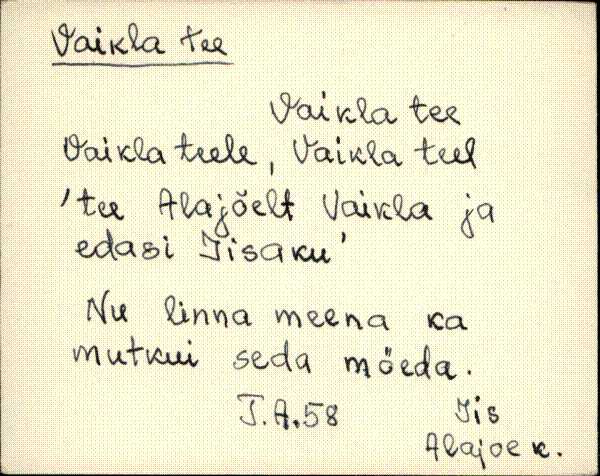 Vaikla tee
Vaikla tee
Vaikla teele, Vaikla teel
'tee Alajõelt Vaikla ja
edasi Iisaku'
Nu linna meena ka
mutkui seda mõeda.
T.A.58 Iis
Alajõe k.